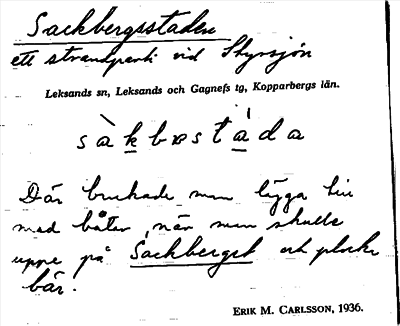 Sackbergsstaden
ett strandparti vid Styrsjön
Leksands sn, Leksands och Gagnefs tg, Kopparbergs län.
sàkbœstáda
Där brukade man lägga till
med båten, när man skulle
uppe på Sackberget och plocka
bär.
ERIK M. CARLSSON, 1936.